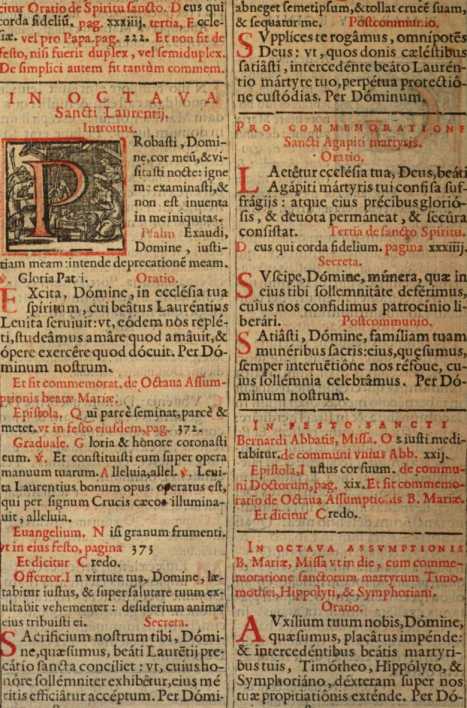 citur Oratio de Spiritu sancto. D eus qui
corda fidelium, pag. xxxiij, tertia, E ccle-
siæ. vel pro Papa. pag. 222. Et non fit de
festo, nisi fuerit duplex, vel semiduplex.
De simplici autem fit tantùm commem.
IN OCTAVA
Sancti Laurentij.
Introitus.
PRobasti, Domi-
ne, cor meũ, & vi-
sitasti nocte: igne
m: examinasti, &
non est inuenta
in me iniquitas.
Psalm Exaudi,
Domine, iusti-
tiam meam: intende deprecationē meam.
℣. Gloria Patri. Oratio.
EXcita, Dómine, in ecclésia tua
spíritum, cui beátus Lauréntius
Leuíta seruiuit: vt, eódem nos repléti,
studeâmus amáre quod amáuit, &
ópere exercére quod dócuit. Per Dó-
minum nostrum.
Et fit commemorat. de Octaua Assum-
ptionis beatæ Mariæ.
Epistola, Q ui parcè seminat, parcè &
metet. vt in festo eiusdem, pag. 372.
Graduale. G loria & honore coronasti
eum. ℣. Et constituisti eum super opera
manuum tuarum. A lleluia, allel. ℣. Leui-
ta Laurentius bonum opus operatus est,
qui per signum Crucis cæcos illumina-
uit, alleluia.
Euangelium, N isi granum frumenti.
vt in eius festo, pagina 373
Et dicitur C redo.
Offertor. I n virtute tua, Domine, læ-
tabitur iustus, & super salutare tuum ex-
ultabit vehementer: desiderium animæ
eius tribuisti ei. Secreta.
SAcrificium nostrum tibi, Dómi-
ne, quæsumus, beáti Lauréntij pre-
cátio sancta concíliet: vt, cuius ho-
nóre sollémniter exhibétur, eius mé
ritis efficiátur accéptum. Per Dómi-
abneget semetipsum, & tollat crucē suam,
& sequatur me. Postcommunio.
SVpplices te rogâmus, omnípotēs
Deus: vt, quos donis cæléstibus
satiásti, intercedénte beáto Laurén-
tio mártyre tuo, perpétua protectió-
ne custódias. Per Dóminum.
PRO COMMEMORATIONE
Sancti Agapiti martyris.
Oratio.
LÆtétur ecclésia tua, Deus, beáti
Agápiti mártyris tui confisa suf-
frágijs: atque eius précibus glorió-
sis, & deuota permáneat, & secúra
consístat. Tertia de sancto Spiritu.
D eus qui corda fidelium. pagina xxxiij.
Secreta.
SVscipe, Dómine, múnera, quæ in
eius tibi sollemnitáte deférimus,
cuius nos confidimus patrocínio li-
berári. Postcommunio.
SAtiásti, Dómine, famíliam tuam
munéribus sacris: eius, quęsumus,
semper interuētióne nos réfoue, cu-
ius sollémnia celebrámus. Per Dó-
minum nostrum.
IN FESTO SANCTI
Bernardi Abbatis, Missa. O s iusti medi-
tabitur. de communi vnius Abb. xxij.
Epistola, I ustus cor suum. de commu-
ni Doctorum, pag. xix. Et fit commemo-
ratio de Octaua Assumptionis B. Mariæ.
Et dicitur C redo.
IN OCTAVA ASSVMPTIONIS
B. Mariæ, Missa vt in die, cum comme-
moratione sanctorum martyrum Timo-
thei, Hippolyti, & Symphoriani.
Oratio.
AVxílium tuum nobis, Dómine,
quæsumus, placátus impénde:
& intercedéntibus beátis martyri-
bus tuis, Timótheo, Hippólyto, &
Symphoriáno, déxteram super nos
tuæ propitiatiónis exténde. Per Dó-